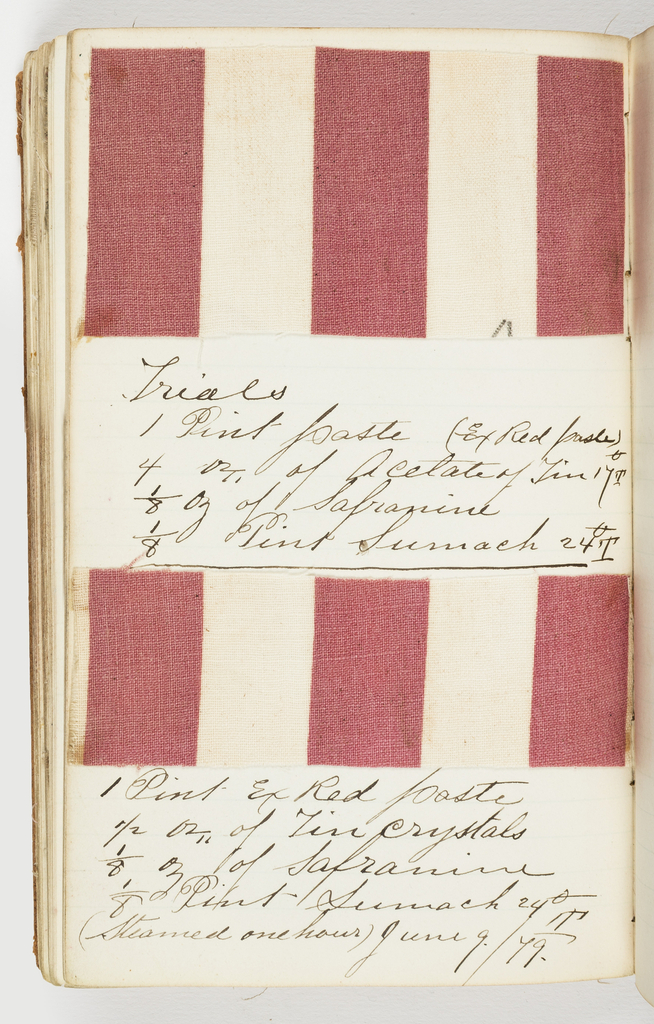 Trials
1 Pint paste (Ex Red paste)
4 oz, of Acetate of Tin 17° T
1/8 Oz of Safranine
1/8 Pint Sumach 24° T
1 Pint Ex Red paste
1/2 oz, of Tin crystals
1/8 oz of Safranine
1/8 Pint Sumach 24° T
(Steamed one hour) June 9/79.